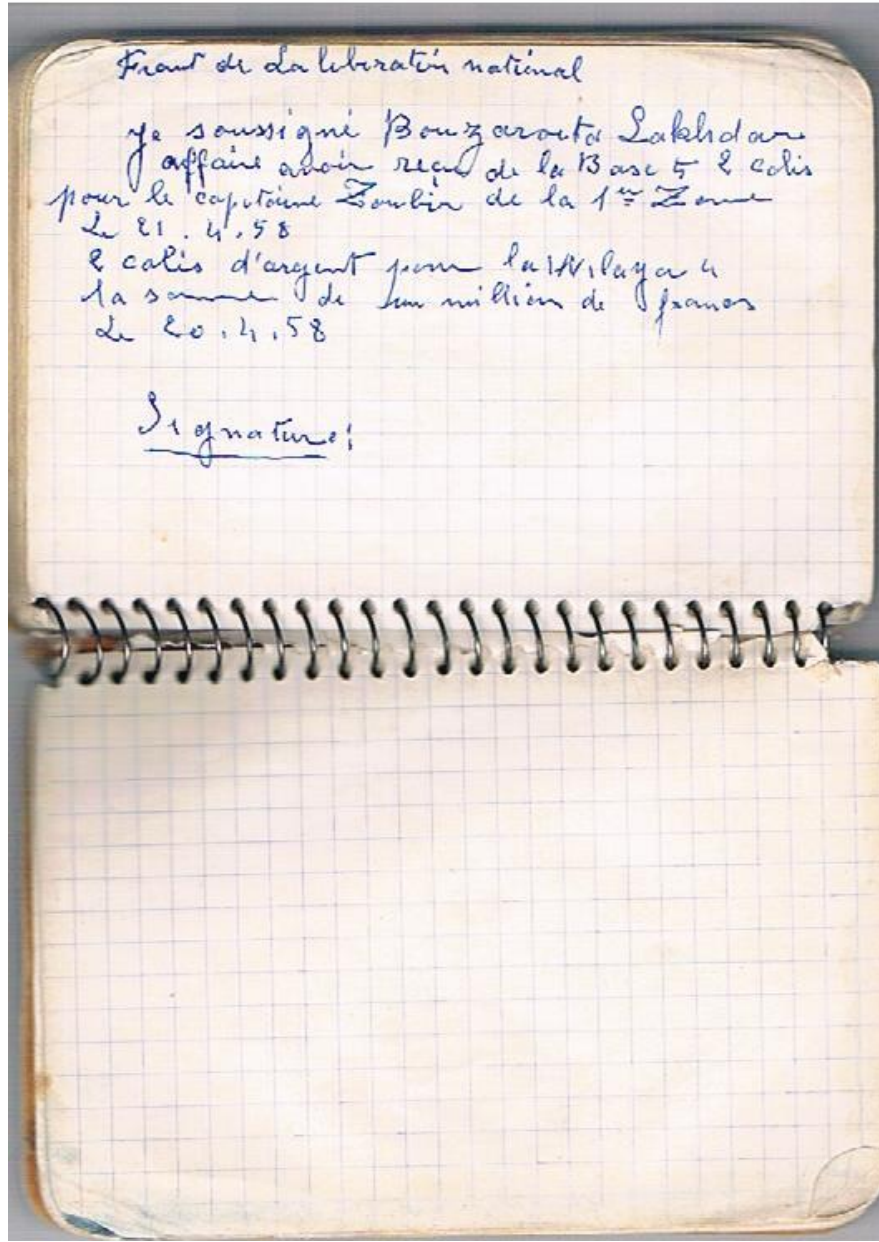 Front de La libération national
Je soussigné Bouzarouta Lakhdar
affaire avoir reçu de la Base 5 2 colis
pour le capitaine Zoubir de la 1ère Zone
Le 21.4.58
2 colis d'argent pour la Wilaya 4
la somme de un million de francs
Le 20.4.58
Signature: